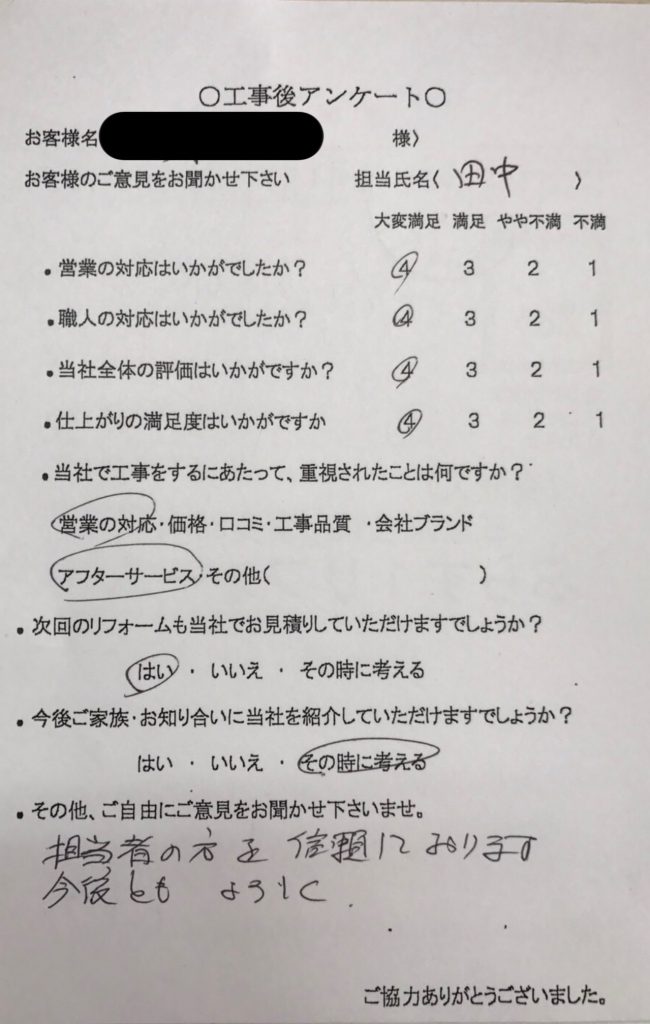 ○工事後アンケート○
お客様名 様〉
お客様のご意見をお聞かせ下さい 担当氏名〈 田中 〉
大変満足 満足 やや不満 不満
・営業の対応はいかがでしたか？ 4 3 2 1
・職人の対応はいかがでしたか？ 4 3 2 1
・当社全体の評価はいかがですか？ 4 3 2 1
・仕上がりの満足度はいかがですか 4 3 2 1
・当社で工事をするにあたって、重視されたことは何ですか？
営業の対応・価格・口コミ・工事品質 ・会社ブランド
アフターサービス・その他( )
・次回のリフォームも当社でお見積りしていただけますでしょうか？
はい ・ いいえ ・ その時に考える
・今後ご家族・お知り合いに当社を紹介していただけますでしょうか？
はい ・ いいえ ・ その時に考える
・その他、ご自由にご意見をお聞かせ下さいませ。
担当者の方を 信頼しております
今後とも よろしく
ご協力ありがとうございました。